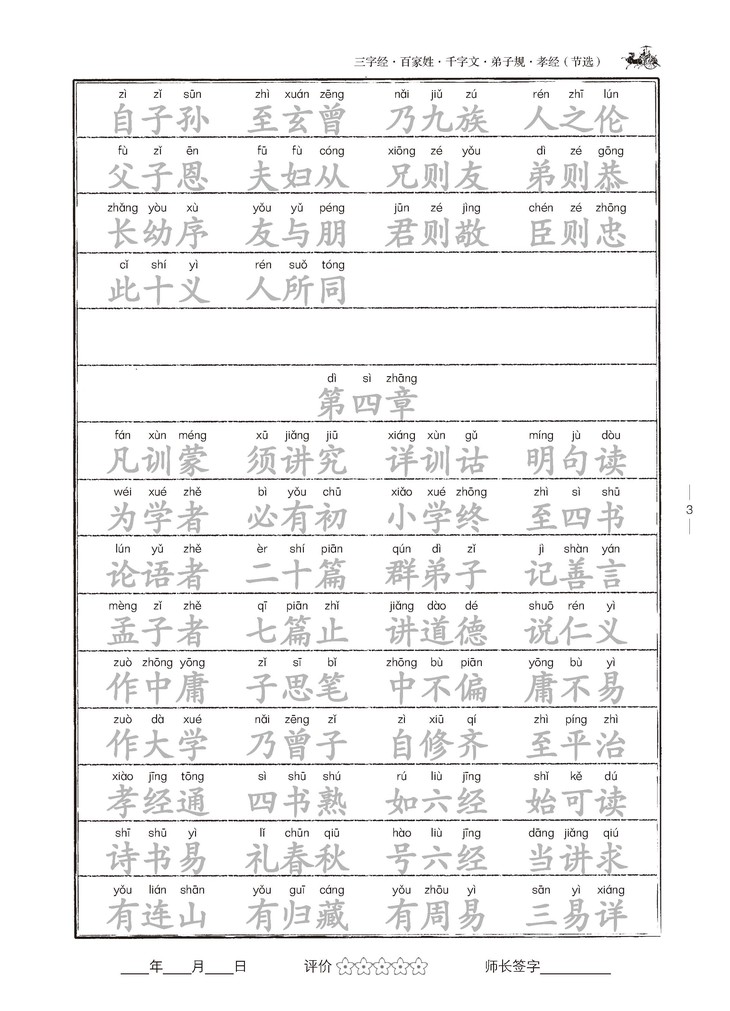 三字经·百家姓·千字文·弟子规·孝经（节选）
zì zǐ sūn zhì xuán zēng nǎi jiǔ zú rén zhī lún
自子孙 至玄曾 乃九族 人之伦
fù zǐ ēn fū fù cóng xiōng zé yǒu dì zé gōng
父子恩 夫妇从 兄则友 弟则恭
zhǎng yòu xù yǒu yǔ péng jūn zé jìng chén zé zhōng
长幼序 友与朋 君则敬 臣则忠
cǐ shí yì rén suǒ tóng
此十义 人所同
dì sì zhāng
第四章
fán xùn méng xū jiǎng jiū xiáng xùn gǔ míng jù dòu
凡训蒙 须讲究 详训诂 明句读
wéi xué zhě bì yǒu chū xiǎo xué zhōng zhì sì shū
为学者 必有初 小学终 至四书
lún yǔ zhě èr shí piān qún dì zǐ jì shàn yán
论语者 二十篇 群弟子 记善言
mèng zǐ zhě qī piān zhǐ jiǎng dào dé shuō rén yì
孟子者 七篇止 讲道德 说仁义
zuò zhōng yōng zǐ sī bǐ zhōng bù piān yōng bù yì
作中庸 子思笔 中不偏 庸不易
zuò dà xué nǎi zēng zǐ zì xiū qí zhì píng zhì
作大学 乃曾子 自修齐 至平治
xiào jīng tōng sì shū shú rú liù jīng shǐ kě dú
孝经通 四书熟 如六经 始可读
shī shū yì lǐ chūn qiū hào liù jīng dāng jiǎng qiú
诗书易 礼春秋 号六经 当讲求
yǒu lián shān yǒu guī cáng yǒu zhōu yì sān yì xiáng
有连山 有归藏 有周易 三易详
3
____年____月____日 评价 ☆☆☆☆☆ 师长签字__________